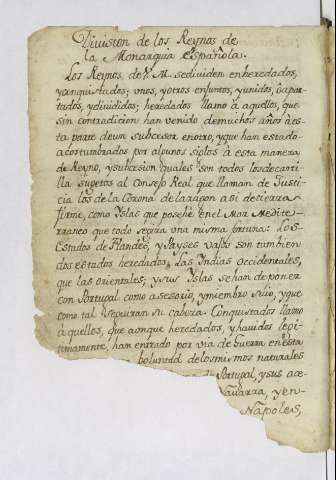 Division de los Reynos de
la Monarquia Española.
Los Reynos, de V. M. sedividen enheredados,
yconquistados; unos, yotros enjuntos, yunidos, ò apar-
tados, ydivididos; heredados llamo à aquellos, que
sin contradicion han venido demuchos años à es-
ta parte deun subcesor enotro, yque han estado
acostumbrados por algunos siglos à esta manera
de Reyno, ysubcesion quales son todos losdecasti-
lla sugetos al Consejo Real que llaman de Justi-
cia los de la Corona de laragon asi detierra
firme, como Islas que posehè enel Mar Medite-
rraneo que todo seguia una misma fortuna: Los
Estados de Flandes, y Payses vajos son tambien
dos estados heredados; Las Indias Occidentales,
que las orientales, y sus Islas sehan de poner
con Portugal como acesorio, ymiembro suio, yque
como tal seguiran su caveza. Conquistados llamo
à aquellos, que aunque heredados, y havidos legi-
timamente, han entrado por via de Guerra en esta
boluntad delosmismos naturales
Portugal, ysus ace-
Navarra, yen-
Napoles,